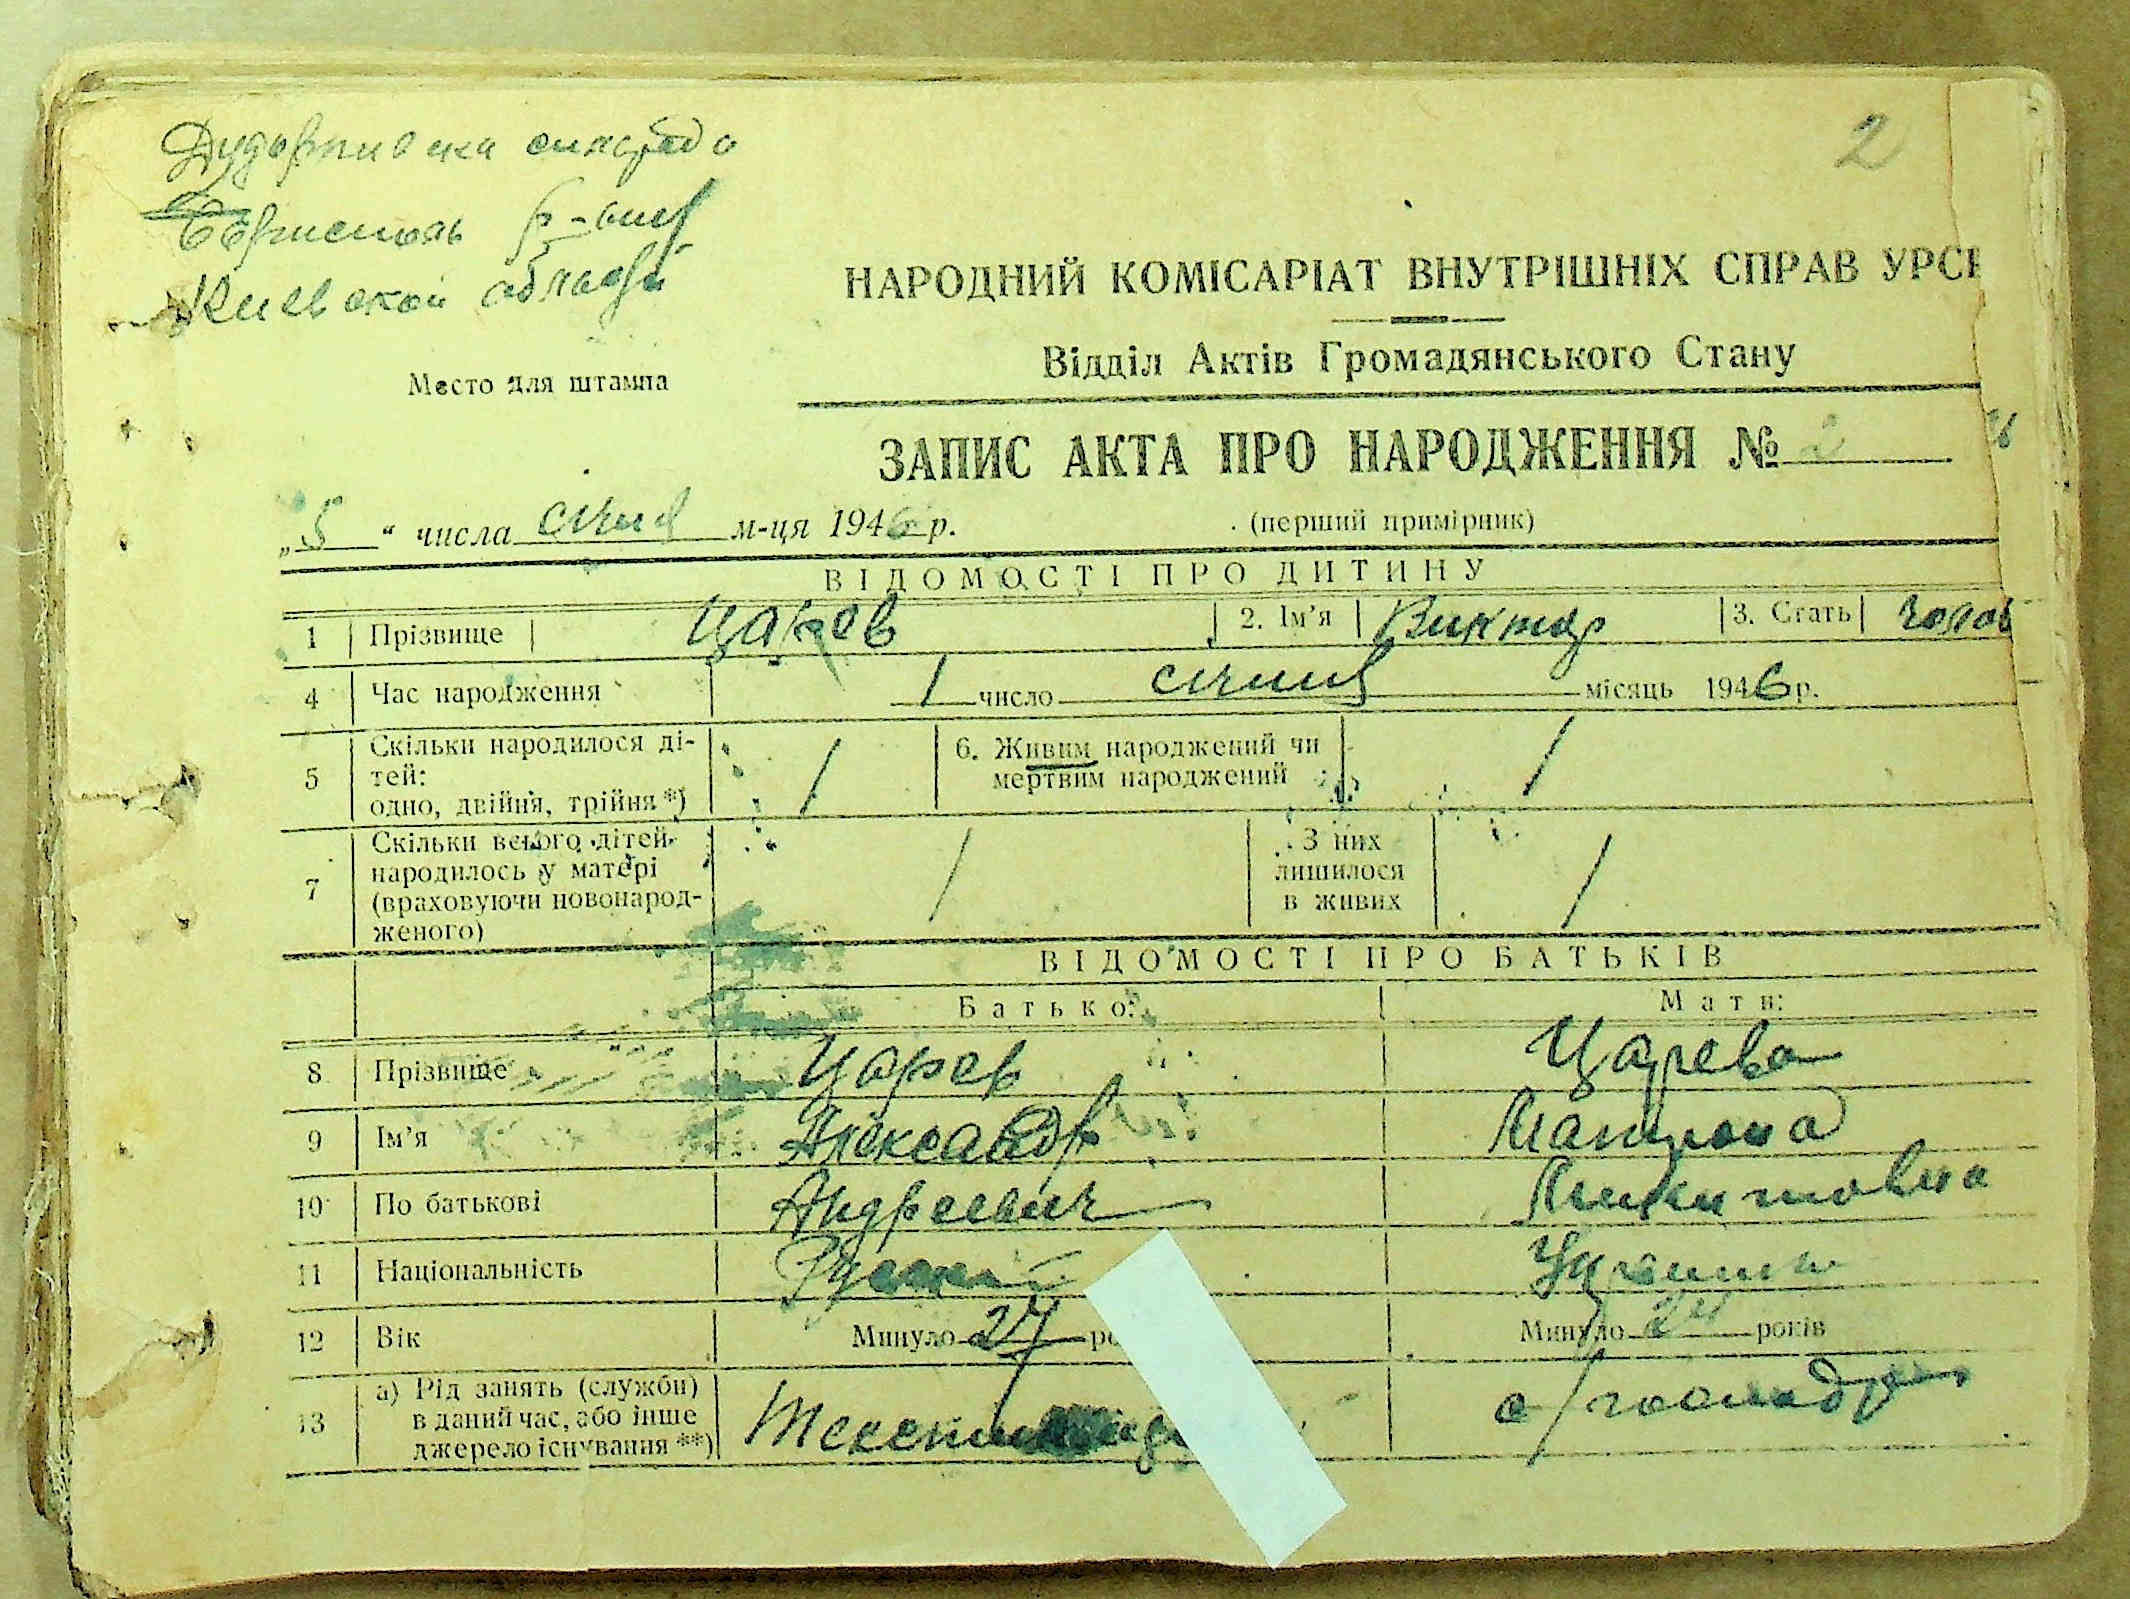 2
Дударківска сільрада
Бориспольского р-ну
Киевской області
НАРОДНИЙ КОМІСАРІАТ ВНУТРІШНІХ СПРАВ УРСР
Відділ Актів Громадянського Стану
Место для штампа
ЗАПИС АКТА ПРО НАРОДЖЕННЯ № 2
„5“ числа січня м-ця 1946 р. (перший примірник)
ВІДОМОСТІ ПРО ДИТИНУ
1 Прізвище Царев 2. Ім’я Виктор 3. Стать чолов
4 Час народження 1 число січня місяць 1946 р.
5 Скільки народилося ді-
тей:
одно, двійня, трійня *) 1
6. Живим народжений чи
мертвим народжений 1
7 Скільки всього дітей
народилось у матері
(враховуючи новонарод-
женого) 1
З них
лишилося
в живих 1
ВІДОМОСТІ ПРО БАТЬКІВ
Батько: Мати:
8 Прізвище Царев Царева
9 Ім’я Александр Матрона
10 По батькові Андреевич Никитовна
11 Національність Русский
12 Вік Минуло 27 ро Минуло 24 років
13 а) Рід занять (служби)
в даний час, або інше
джерело існування **)
с/господар